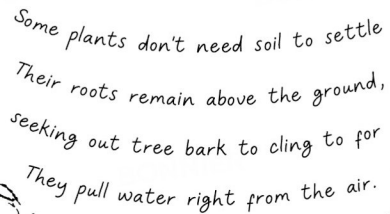 Some plants don't need soil to settle
Their roots remain above the ground,
seeking out tree bark to cling to for
They pull water right from the air.